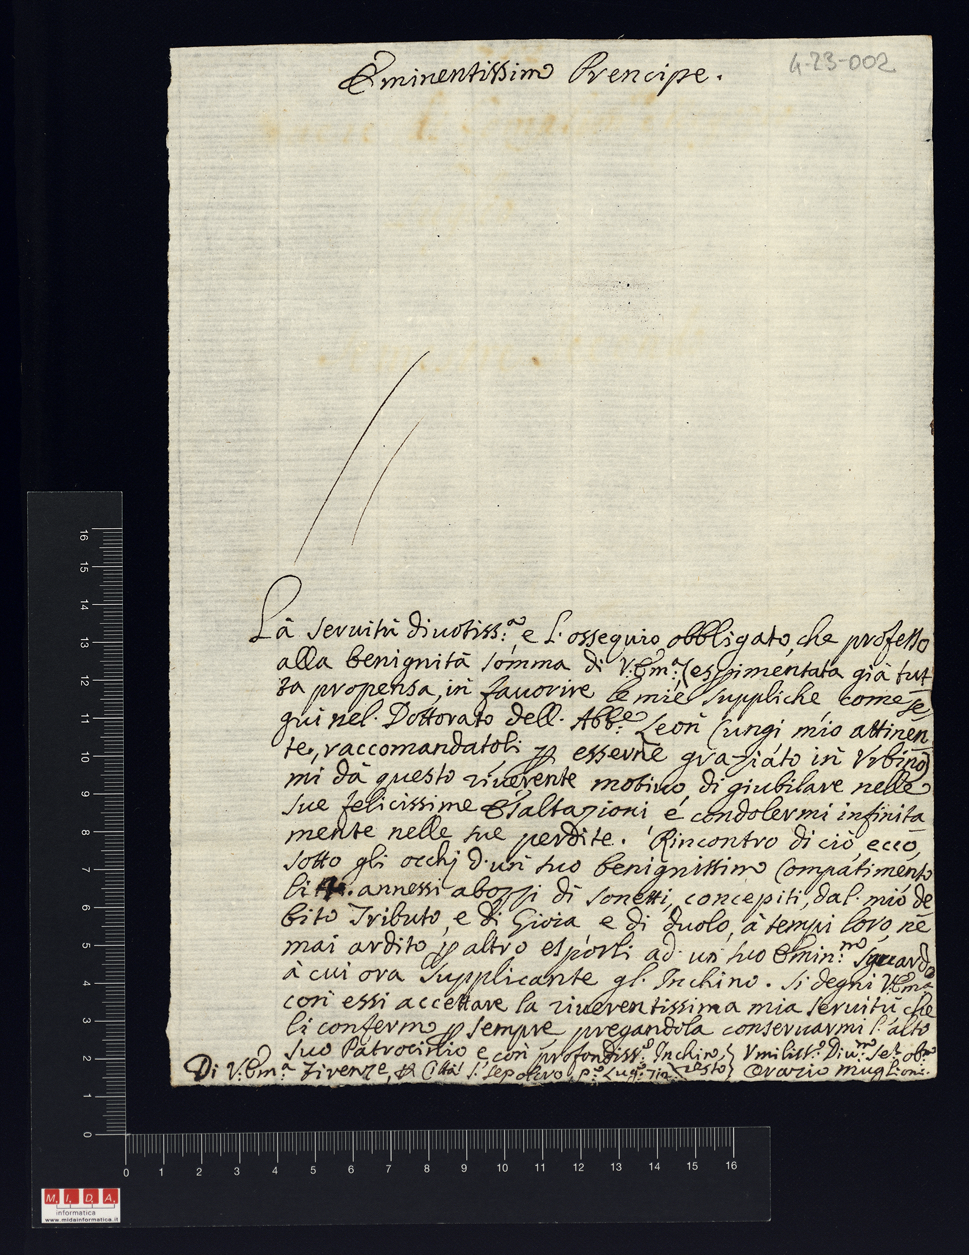 4-23-002
Eminentissimo Prencipe.
La seruitù diuotiss:ᵃ e L'ossequio obbligato, che professo
alla benignità somma di V: Em:ᵃ (esperimentata già tut
ta propensa, in fauorire le mie suppliche come se-
guì nel Dottorato dell' Abb:ᵉ Leon Cungi mio attinen
te, raccomandatoli p esserne graziato in Vrbino)
mi dà questo riuerente motiuo di giubilare nelle
sue felicissime Esaltazioni e condolermi infinita
mente nelle sue perdite. Rincontro di ciò ecco
sotto gli occhj d'un suo benignissimo Compatimento
li annessi abozzi di Sonetti, concepiti, dal mio de
bito Tributo, e di Gioia e di duolo, à tempi loro, nè
mai ardito p altro esporli ad un suo Emin:ᵐᵒ Sguardo
à cui ora supplicante gl' Inchino. Si degni V: Em:ᵃ
con essi accettare la riuerentissima mia seruitù che
li confermo p sempre pregandola conseruarmi l'alto
suo Patrocinio e con profondiss:ᵒ Inchino,
Di V: Em:ᵃ Firenze, Città S: Sepolcro P:ᵒ resto
Vmiliss:ᵒ Diu:ᵐᵒ Se:ʳ ob:ᵐᵒ
Orazio Muglioni.
16
15
14
13
12
11
10
9
8
7
6
5
4
3
2
1
0
0 1 2 3 4 5 6 7 8 9 10 11 12 13 14 15 16
M. I. D. A.
informatica
www.midainformatica.it